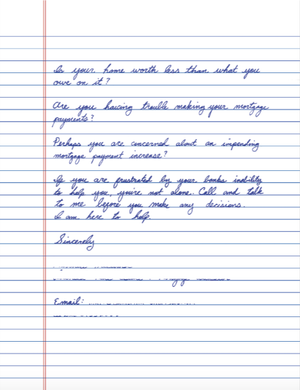 Is your home worth less than what you
owe on it?
Are you having trouble making your mortgage
payments?
Perhaps you are concerned about an impending
mortgage payment increase?
If you are frustrated by your banks inability
to help you, you're not alone. Call and talk
to me before you make any decisions.
I am here to help.
Sincerely
Email: